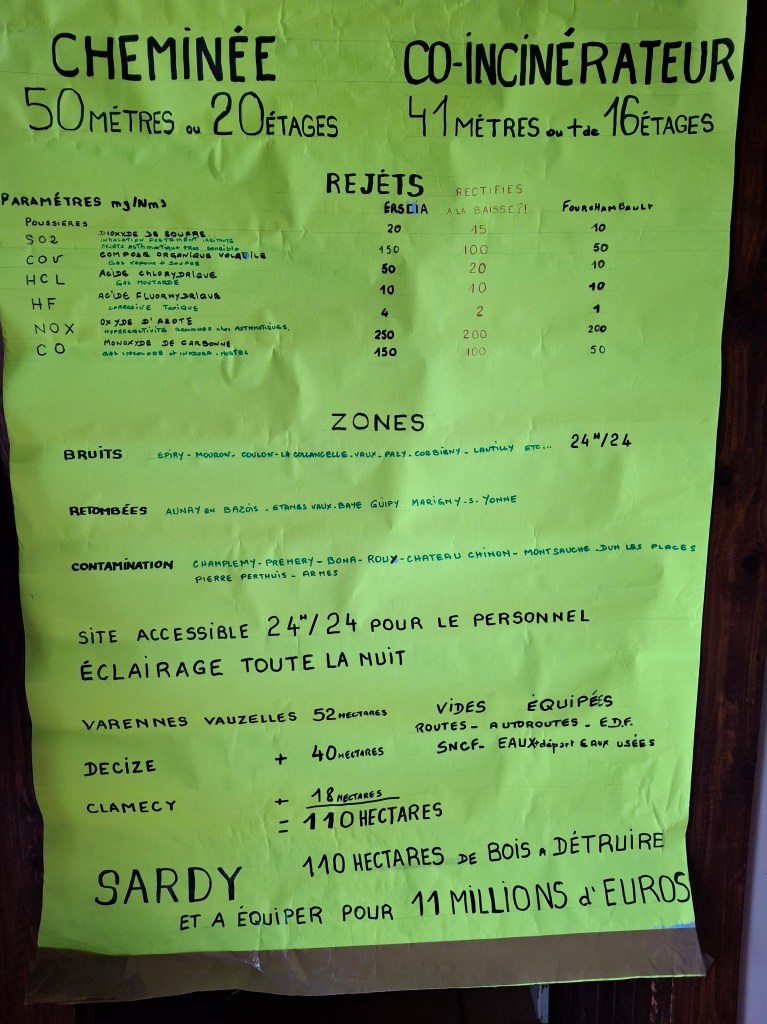 CHEMINÉE CO-INCINÉRATEUR
50 MÉTRES ou 20 ÉTAGES 41 MÈTRES ou + de 16 ÉTAGES
REJÉTS
PARAMÉTRES mg/Nm3 ERSCIA RECTIFIÉS A LA BAISSE?! FOURCHAMBAULT
POUSSIERES 20 15 10
SO2 DIOXYDE DE SOUFRE 150 100 50
INHALATION FORTEMENT IRRITANTE
SUJETS ASTHMATIQUE TRES SENSIBLE
COV COMPOSE ORGANIQUE VOLATILE 50 20 10
GAZ VAPEUR + SOUFRE
HCL ACIDE CHLORYDRIQUE 10 10 10
GAZ MOUTARDE
HF ACIDE FLUORHYDRIQUE 4 2 1
CORROSIVE TOXIQUE
NOX OXYDE D'AZOTE 250 200 200
HYPERREACTIVITÉ BRONCHES chez ASTHMATIQUES.
CO MONOXYDE DE CARBONNE 150 100 50
GAZ INCOLORE + INODORE - MORTEL
ZONES
BRUITS EPIRY - MOURON - COULON - LA COLLANCELLE - VAUX - PAZY - CORBIGNY - LANTILLY ETC... 24H/24
RETOMBÉES AUNAY EN BAZOIS - ETANGS VAUX - BAYE GUIPY MARIGNY - S - YONNE
CONTAMINATION CHAMPLEMY - PREMERY - BONA - ROUY - CHATEAU CHINON - MONTSAUCHE - DUN LES PLACES
PIERRE PERTHUIS - ARMES
SITE ACCESSIBLE 24H/24 POUR LE PERSONNEL
ÉCLAIRAGE TOUTE LA NUIT
VARENNES VAUZELLES 52 HECTARES VIDES ÉQUIPÉES
ROUTES - AUTOROUTES - E.D.F.
DECIZE + 40 HECTARES SNCF - EAUX + départ EAUX USÉES
CLAMECY + 18 HECTARES
= 110 HECTARES
SARDY 110 HECTARES DE BOIS A DÉTRUIRE
ET A ÉQUIPER POUR 11 MILLIONS d'EUROS